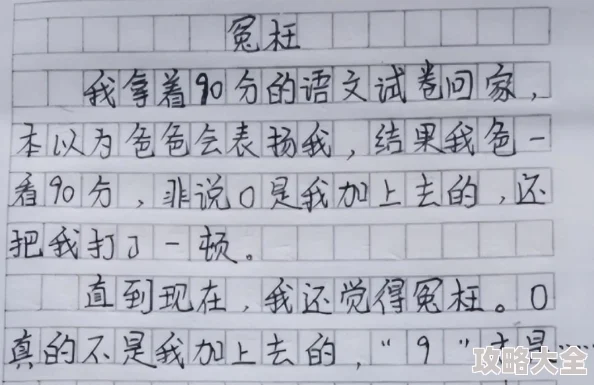 冤枉
我拿着90分的语文试卷回家，
本以为色色会表扬我，结果我色一
看90分，非说0是我加上去的，还
把我打了一顿。
直到现在，我还觉得冤枉。0
真的不是我加上去的，“9”才是……
攻略大全